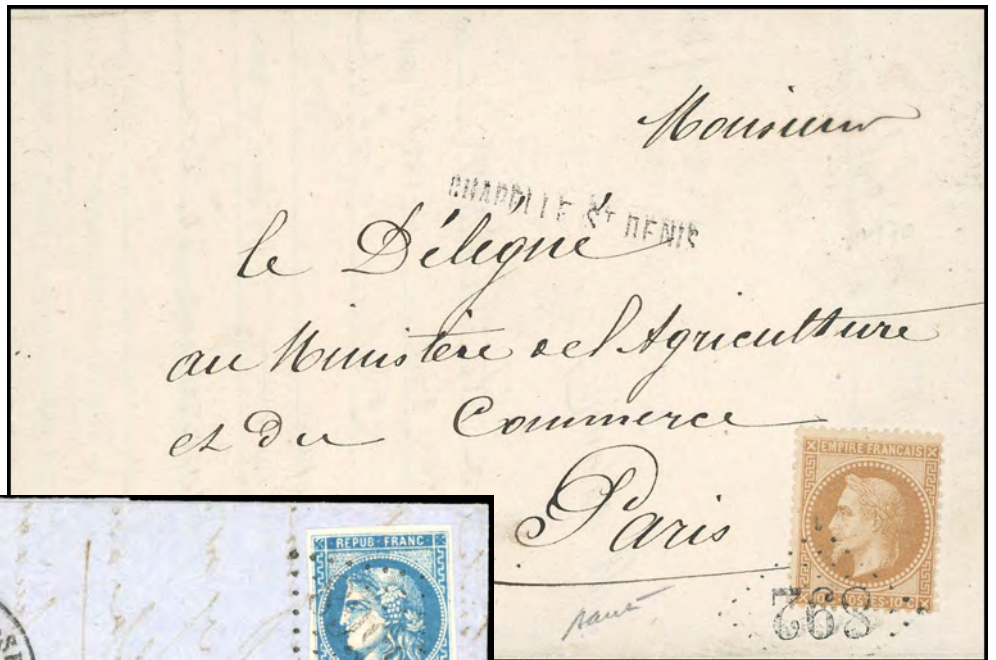 Monsieur
CHAPELLE ST DENIS
le Délégué
au Ministère de l'Agriculture
et du Commerce
Paris
EMPIRE FRANÇAIS
REPUB FRANC